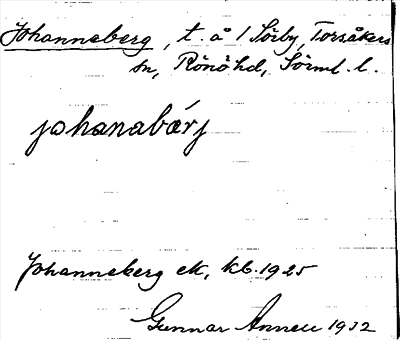 Johanneberg, t. å 1 Sörby, Torsåkers
sn, Rönöhd, Sörml. l.
johanabärj
Johanneberg ek, kb. 1925
Gunnar Annell 1932